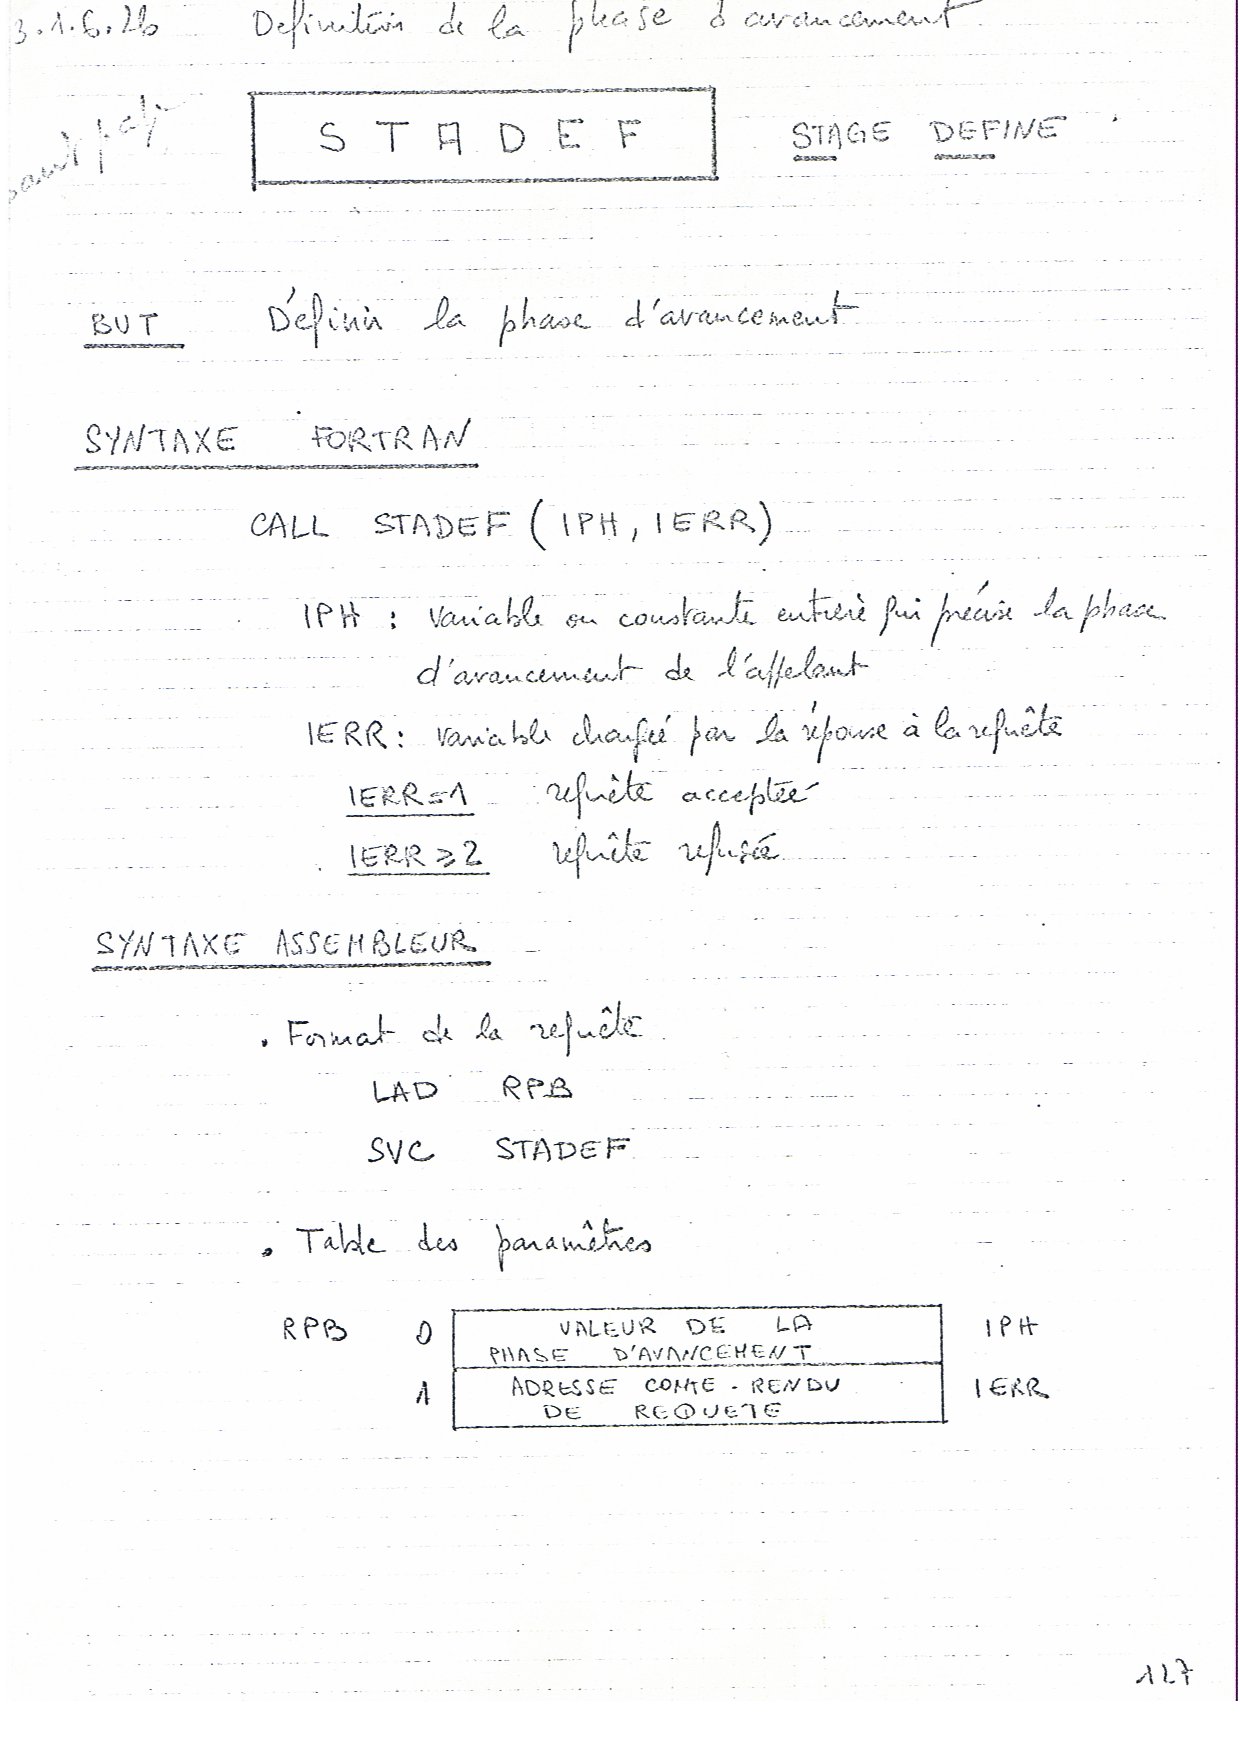 3.1.6.26 Définition de la phase d'avancement
saut page
STADEF STAGE DEFINE
BUT Définir la phase d'avancement
SYNTAXE FORTRAN
CALL STADEF (IPH, IERR)
IPH : variable ou constante entière qui précise la phase
d'avancement de l'appelant
IERR : variable chargée par la réponse à la requête
IERR=1 requête acceptée
IERR≥2 requête refusée
SYNTAXE ASSEMBLEUR
. Format de la requête
LAD RPB
SVC STADEF
. Table des paramêtres
RPB 0 VALEUR DE LA IPH
PHASE D'AVANCEMENT
1 ADRESSE COMTE-RENDU IERR
DE REQUETE
127